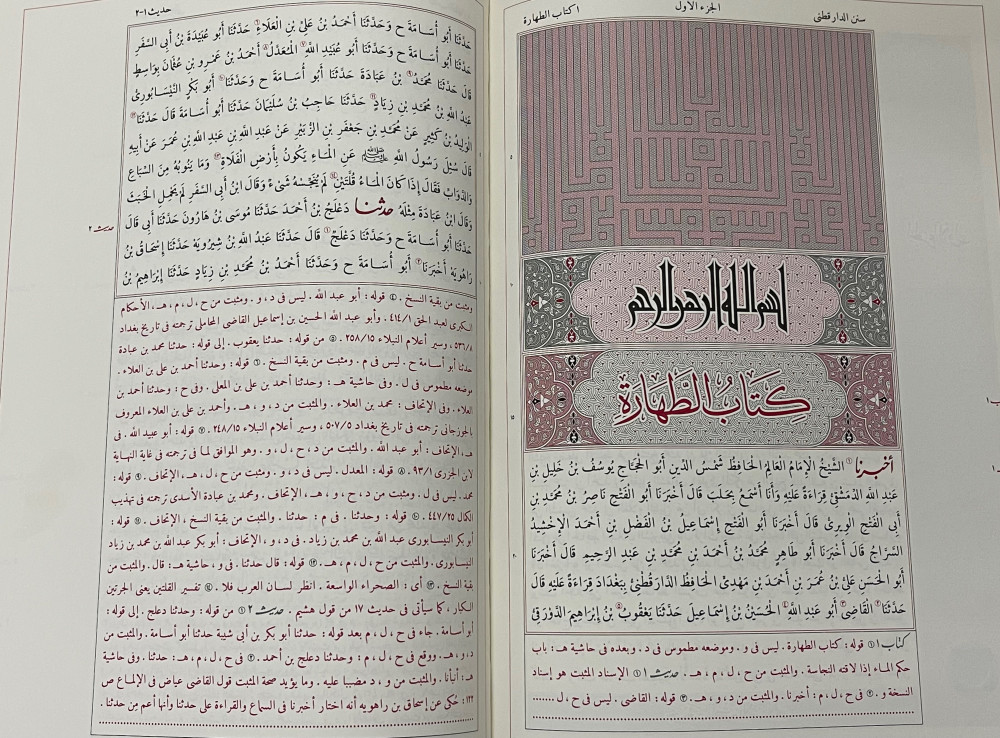 سنن الدارقطنى
الجزء الأول
١ كتاب الطهارة
بسم الله الرحمن الرحيم
كِتَابُ الطَّهَارَةِ
أخبرنا الشَّيْخُ الإِمَامُ الْعَالِمُ الْحَافِظُ شَمْسُ الدِّينِ أَبُو الْحَجَّاجِ يُوسُفُ بْنُ خَلِيلِ بْنِ
عَبْدِ اللهِ الدِّمَشْقِىُّ قِرَاءَةً عَلَيْهِ وَأَنَا أَسْمَعُ بِحَلَبَ قَالَ أَخْبَرَنَا أَبُو الْفَتْحِ نَاصِرُ بْنُ مُحَمَّدِ بْنِ
أَبِى الْفَتْحِ الْوِيرِىُّ قَالَ أَخْبَرَنَا أَبُو الْفَتْحِ إِسْمَاعِيلُ بْنُ الْفَضْلِ بْنِ أَحْمَدَ الإِخْشِيدُ
السَّرَّاجُ قَالَ أَخْبَرَنَا أَبُو طَاهِرٍ مُحَمَّدُ بْنُ أَحْمَدَ بْنِ مُحَمَّدِ بْنِ عَبْدِ الرَّحِيمِ قَالَ أَخْبَرَنَا
أَبُو الْحَسَنِ عَلِىُّ بْنُ عُمَرَ بْنِ أَحْمَدَ بْنِ مَهْدِىٍّ الْحَافِظُ الدَّارَقُطْنِىُّ بِبَغْدَادَ قِرَاءَةً عَلَيْهِ قَالَ
حَدَّثَنَا الْقَاضِى أَبُو عَبْدِ اللهِ الْحُسَيْنُ بْنُ إِسْمَاعِيلَ حَدَّثَنَا يَعْقُوبُ بْنُ إِبْرَاهِيمَ الدَّوْرَقِىُّ
كتاب ١ ① قوله : كتاب الطهارة . ليس فى و . وموضعه مطموس فى د . وبعده فى حاشية هـ : باب
حكم الماء إذا لاقته النجاسة . والمثبت من ح ، ل ، م ، هـ . حديث ١ ① الإسناد المثبت هو إسناد
النسخة و . ② فى ح ، ل ، م : أخبرنا . والمثبت من د ، و ، هـ . ③ قوله : القاضى . ليس فى ح ، ل ......
حديث ١-٢
حَدَّثَنَا أَبُو أُسَامَةَ ح وَحَدَّثَنَا أَحْمَدُ بْنُ عَلِىِّ بْنِ الْعَلاَءِ حَدَّثَنَا أَبُو عُبَيْدَةَ بْنُ أَبِى السَّفَرِ
حَدَّثَنَا أَبُو أُسَامَةَ ح وَحَدَّثَنَا أَبُو عُبَيْدِ اللهِ الْمُعَدَّلُ أَحْمَدُ بْنُ عَمْرِو بْنِ عُثْمَانَ بِوَاسِطٍ
قَالَ حَدَّثَنَا مُحَمَّدُ بْنُ عُبَادَةَ حَدَّثَنَا أَبُو أُسَامَةَ ح وَحَدَّثَنَا أَبُو بَكْرٍ النَّيْسَابُورِىُّ
عَبْدُ اللهِ بْنُ مُحَمَّدِ بْنِ زِيَادٍ حَدَّثَنَا حَاجِبُ بْنُ سُلَيْمَانَ حَدَّثَنَا أَبُو أُسَامَةَ قَالَ حَدَّثَنَا
الْوَلِيدُ بْنُ كَثِيرٍ عَنْ مُحَمَّدِ بْنِ جَعْفَرِ بْنِ الزُّبَيْرِ عَنْ عَبْدِ اللهِ بْنِ عَبْدِ اللهِ بْنِ عُمَرَ عَنْ أَبِيهِ
قَالَ سُئِلَ رَسُولُ اللهِ ﷺ عَنِ الْمَاءِ يَكُونُ بِأَرْضِ الْفَلاَةِ وَمَا يَنُوبُهُ مِنَ السِّبَاعِ
وَالدَّوَابِّ فَقَالَ إِذَا كَانَ الْمَاءُ قُلَّتَيْنِ لَمْ يُنَجِّسْهُ شَىْءٌ وَقَالَ ابْنُ أَبِى السَّفَرِ لَمْ يَحْمِلِ الْخَبَثَ
وَقَالَ ابْنُ عُبَادَةَ مِثْلَهُ حدثنا دَعْلَجُ بْنُ أَحْمَدَ حَدَّثَنَا مُوسَى بْنُ هَارُونَ حَدَّثَنَا أَبِى قَالَ
حديث ٢
حَدَّثَنَا أَبُو أُسَامَةَ ح وَحَدَّثَنَا دَعْلَجٌ قَالَ حَدَّثَنَا عَبْدُ اللهِ بْنُ شِيرُوَيْهِ حَدَّثَنَا إِسْحَاقُ بْنُ
رَاهُوَيْهِ أَخْبَرَنَا أَبُو أُسَامَةَ ح وَحَدَّثَنَا أَحْمَدُ بْنُ مُحَمَّدِ بْنِ زِيَادٍ حَدَّثَنَا إِبْرَاهِيمُ بْنُ
ومثبت من بقية النسخ . ④ قوله : أبو عبد الله . ليس فى د ، و . ومثبت من ح ، ل ، م ، هـ ، الأحكام
الكبرى لعبد الحق ٤١٤/١ . وأبو عبد الله الحسين بن إسماعيل القاضى المحاملى ترجمته فى تاريخ بغداد
٥٣٦/٨ ، وسير أعلام النبلاء ٢٥٨/١٥ . ⑤ من قوله : حدثنا يعقوب . إلى قوله : حدثنا محمد بن عبادة
حدثنا أبو أسامة ح . ليس فى م . ومثبت من بقية النسخ . ⑥ قوله : وحدثنا أحمد بن على بن العلاء .
موضعه مطموس فى ل . وفى حاشية هـ : وحدثنا أحمد بن على بن المعلى . وفى ح : وحدثنا أحمد بن
العلاء . وفى الإتحاف : محمد بن العلاء . والمثبت من د ، و ، هـ . وأحمد بن على بن العلاء المعروف
بالجوزجانى ترجمته فى تاريخ بغداد ٥٠٧/٥ ، وسير أعلام النبلاء ٢٤٨/١٥ . ⑦ قوله : أبو عبيد الله . فى
هـ ، الإتحاف : أبو عبد الله . والمثبت من د ، ح ، ل ، و . وهو الموافق لما فى ترجمته فى غاية النهاية
لابن الجزرى ٩٣/١ . ⑧ قوله : المعدل . ليس فى د ، و . ومثبت من ح ، ل ، هـ ، الإتحاف . ⑨ قوله :
محمد . ليس فى ل . ومثبت من د ، ح ، و ، هـ ، الإتحاف . ومحمد بن عبادة الأسدى ترجمته فى تهذيب
الكمال ٤٤٧/٢٥ . ⑩ قوله : وحدثنا . فى م : حدثنا . والمثبت من بقية النسخ ، الإتحاف . ⑪ قوله :
أبو بكر النيسابورى عبد الله بن محمد بن زياد . فى د ، و ، الإتحاف : أبو بكر عبد الله بن محمد بن زياد
النيسابورى . والمثبت من ح ، ل ، م ، هـ . ⑫ قوله : قال حدثنا . فى و ، حاشية هـ : قال . والمثبت من
بقية النسخ . ⑬ أى : الصحراء الواسعة . انظر لسان العرب فلا . ⑭ تفسير القلتين يعنى الجرتين
الكبار ، كما سيأتى فى حديث ١٧ من قول هشيم . حديث ٢ ① من قوله : وحدثنا دعلج . إلى قوله :
أبو أسامة . جاء فى ح ، ل ، م بعد قوله : حدثنا أبو بكر بن أبى شيبة حدثنا أبو أسامة . والمثبت من
د ، و ، هـ . ووقع فى ح ، ل ، م : وحدثنا دعلج بن أحمد . ② فى ح ، ل ، م ، هـ : حدثنا . وفى حاشية
هـ : أنبأنا . والمثبت من و ، د مضببا عليه . ومما يؤيد صحة المثبت قول القاضى عياض فى الإلماع ص
١٢٢ : حُكى عن إسحاق بن راهويه أنه اختار أخبرنا فى السماع والقراءة على حدثنا وأنها أعم من حدثنا .